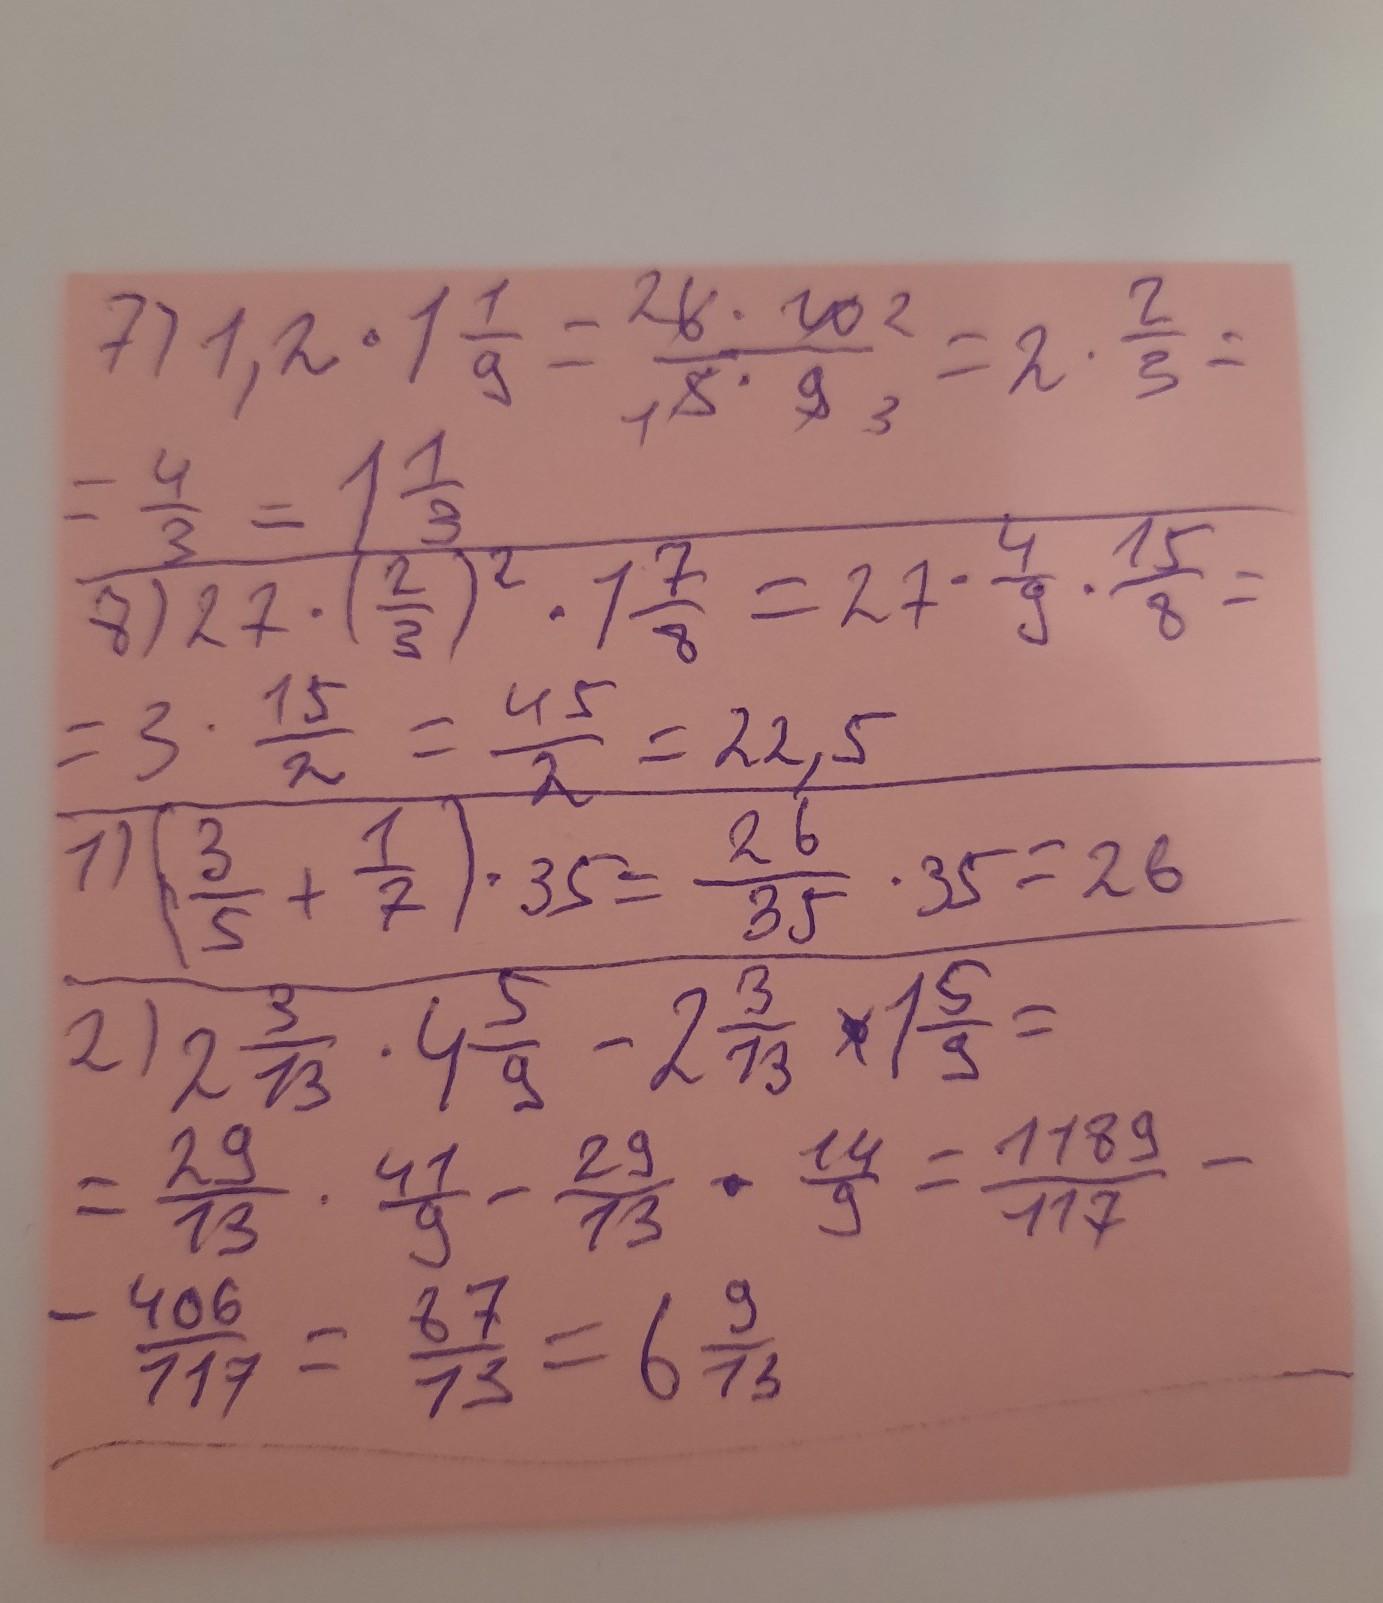 7) 1,2 · 1 1/9 = 26 · 10 2 / 1 5 · 9 3 = 2 · 2/3 =
= 4/3 = 1 1/3
8) 27 · (2/3)² · 1 7/8 = 27 · 4/9 · 15/8 =
= 3 · 15/2 = 45/2 = 22,5
1) (3/5 + 1/7) · 35 = 26/35 · 35 = 26
2) 2 3/13 · 4 5/9 - 2 3/13 · 1 5/9 =
= 29/13 · 41/9 - 29/13 · 14/9 = 1189/117 -
- 406/117 = 87/13 = 6 9/13